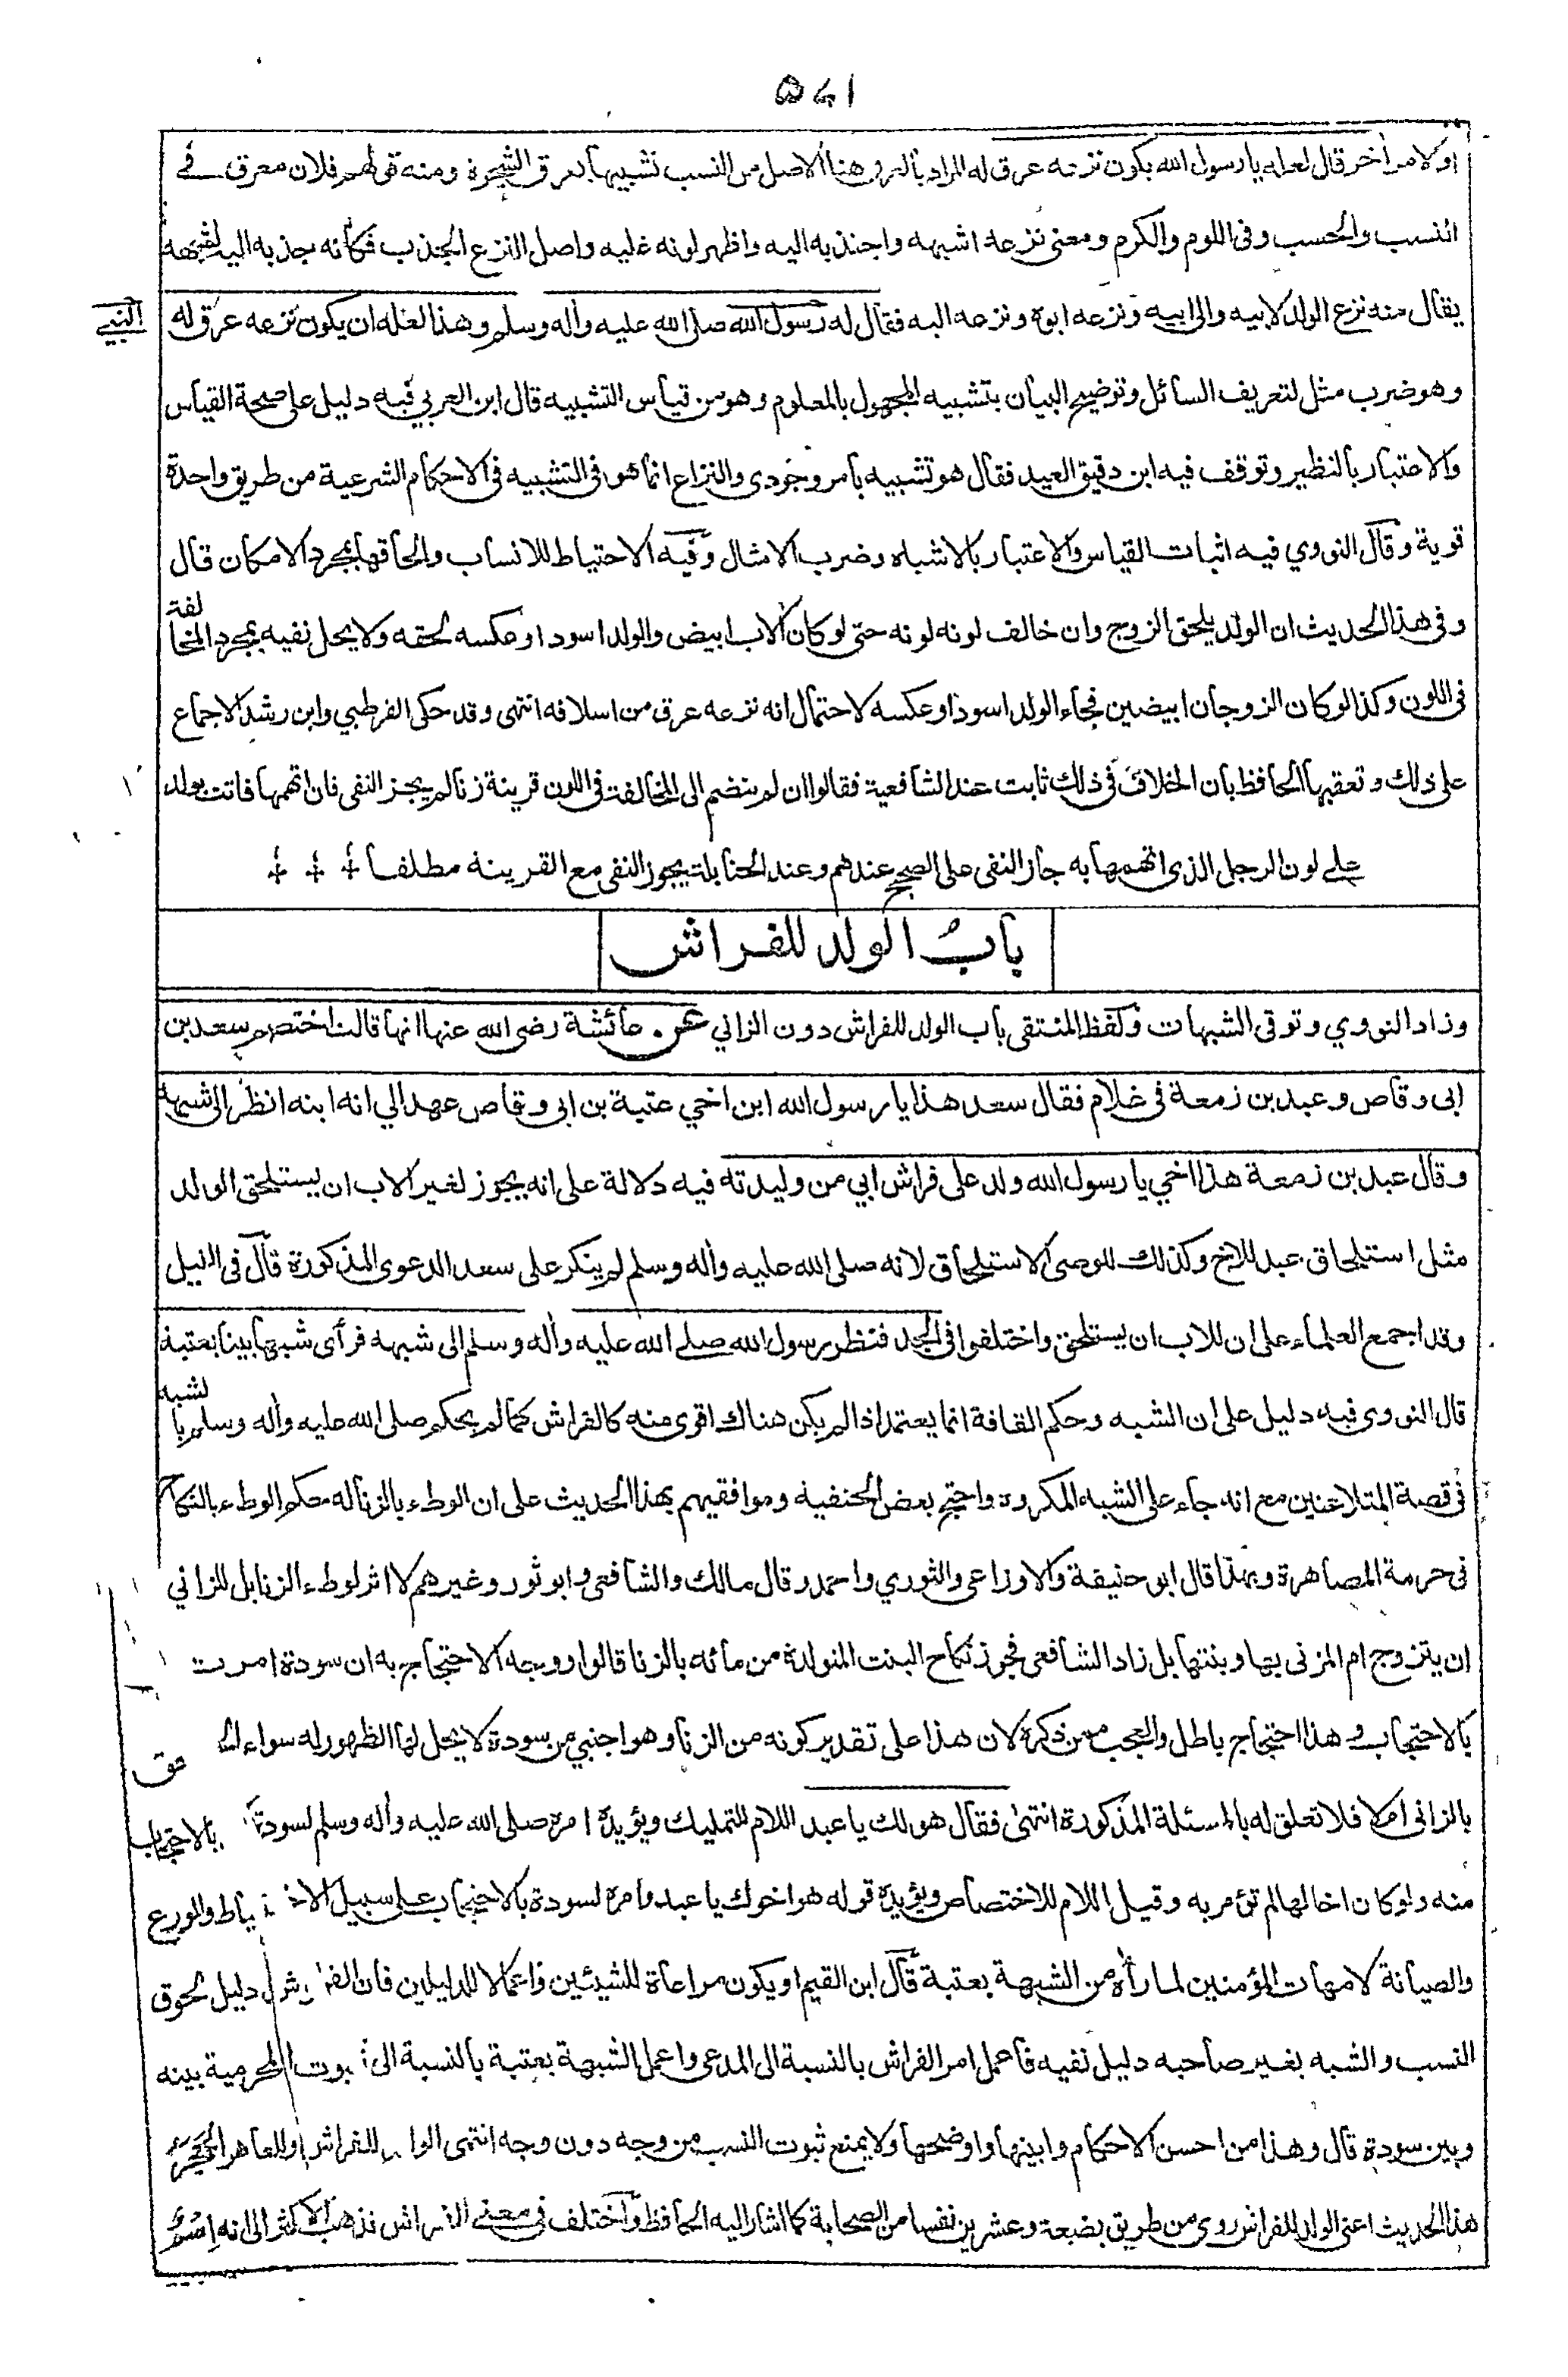 ۵۷۱
او لامر اخر قال لعله يا رسول الله يكون نزعه عرق له المراد بالعرق هنا الاصل من النسب تشبيها بعرق الشجرة ومنه قولهم فلان معرق في
النسب والحسب وفى اللوم والكرم ومعنى نزعه اشبهه واجتذبه اليه واظهر لونه عليه واصل النزع الجذب فكأنه جذبه اليه لشبهه
يقال منه نزع الولد لابيه والى ابيه ونزعه ابوه ونزعه اليه فقال له رسول الله صلى الله عليه واله وسلم وهذا لعله ان يكون نزعه عرق له
النبي
وهو ضرب مثل لتعريف السائل وتوضيح البيان بتشبيه المجهول بالمعلوم وهو من قياس التشبيه قال ابن العربي فيه دليل على صحة القياس
والاعتبار بالنظير وتوقف فيه ابن دقيق العيد فقال هو تشبيه بامر وجودى والنزاع انما هو فى التشبيه فى الاحكام الشرعية من طريق واحدة
قوية وقال النووي فيه اثبات القياس والاعتبار بالاشباه وضرب الامثال وفيه الاحتياط للانساب والحاقها بمجرد الامكان قال
وفى هذا الحديث ان الولد يلحق الزوج وان خالف لونه لونه حتى لو كان الاب ابيض والولد اسود او عكسه لحقه ولا يحل نفيه بمجرد المخالفة
فى اللون وكذا لو كان الزوجان ابيضين فجاء الولد اسود او عكسه لاحتمال انه نزعه عرق من اسلافه انتهى وقد حكى القرطبي وابن رشد الاجماع
على ذلك وتعقبها الحافظ بان الخلاف فى ذلك ثابت عند الشافعية فقالوا ان لم ينضم الى المخالفة فى اللون قرينة زنا لم يجز النفى فان اتهمها فاتت بولد
على لون الرجل الذى اتهمها به جاز النفى على الصحيح عندهم وعند الحنابلة يجوز النفى مع القرينة مطلقا
باب الولد للفراش
وزاد النووي وتوقى الشبهات ولفظ المنتقى باب الولد للفراش دون الزاني عن عائشة رضى الله عنها انها قالت اختصم سعد بن
ابى وقاص وعبد بن زمعة فى غلام فقال سعد هذا يا رسول الله ابن اخي عتبة بن ابى وقاص عهد الي انه ابنه انظر الى شبهه
وقال عبد بن زمعة هذا اخي يا رسول الله ولد على فراش ابي من وليدته فيه دلالة على انه يجوز لغير الاب ان يستلحق الولد
مثل استلحاق عبد للاخ وكذلك للوصى الاستلحاق لانه صلى الله عليه واله وسلم لم ينكر على سعد الدعوى المذكورة قال فى النيل
وقد اجمع العلماء على ان للاب ان يستلحق واختلفوا فى الجد فنظر رسول الله صلى الله عليه واله وسلم الى شبهه فرأى شبها بينا بعتبة
قال النووى فيه دليل على ان الشبه وحكم القافة انما يعتمد اذا لم يكن هناك اقوى منه كالفراش كما لم يحكم صلى الله عليه واله وسلم بالشبه
فى قصة المتلاعنين مع انه جاء على الشبه المكروه واحتج بعض الحنفية وموافقيهم بهذا الحديث على ان الوطء بالزنا له حكم الوطء بالنكاح
فى حرمة المصاهرة وبهذا قال ابو حنيفة والاوزاعى والثوري واحمد وقال مالك والشافعى وابو ثور وغيرهم لا اثر لوطء الزنا بل للزاني
ان يتزوج ام المزنى بها وبنتها بل زاد الشافعى فجوز نكاح البنت المتولدة من مائه بالزنا قالوا ووجه الاحتجاج به ان سودة امرت
بالاحتجاب وهذا احتجاج باطل والعجب ممن ذكره لان هذا على تقدير كونه من الزنا وهو اجنبي من سودة لا يحل لها الظهور له سواء الحق
بالزانى ام لا فلا تعلق له بالمسئلة المذكورة انتهى فقال هو لك يا عبد اللام للتمليك ويؤيده امره صلى الله عليه واله وسلم لسودة بالاحتجاب
منه ولو كان اخا لها لم تؤمر به وقيل اللام للاختصاص ويؤيده قوله هو اخوك يا عبد وامره لسودة بالاحتجاب على سبيل الاحتياط والورع
والصيانة لامهات المؤمنين لما رأه من الشبهة بعتبة قال ابن القيم او يكون مراعاة للشيئين واعمالا للدليلين فان الفراش دليل لحوق
النسب والشبه بغير صاحبه دليل نفيه فاعمل امر الفراش بالنسبة الى المدعى واعمل الشبهة بعتبة بالنسبة الى ثبوت المحرمية بينه
وبين سودة قال وهذا من احسن الاحكام وابينها واوضحها ولا يمنع ثبوت النسب من وجه دون وجه انتهى الولد للفراش وللعاهر الحجر
هذا الحديث اعنى الولد للفراش روى من طريق بضعة وعشرين نفسا من الصحابة كما اشار اليه الحافظ واختلف فى معنى الفراش فذهب الاكثر الى انه اسم